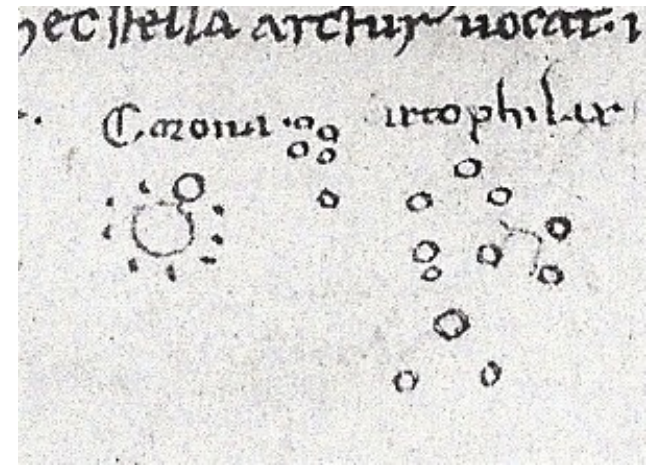 hec stella arctur uocat· i
Corona artophilax